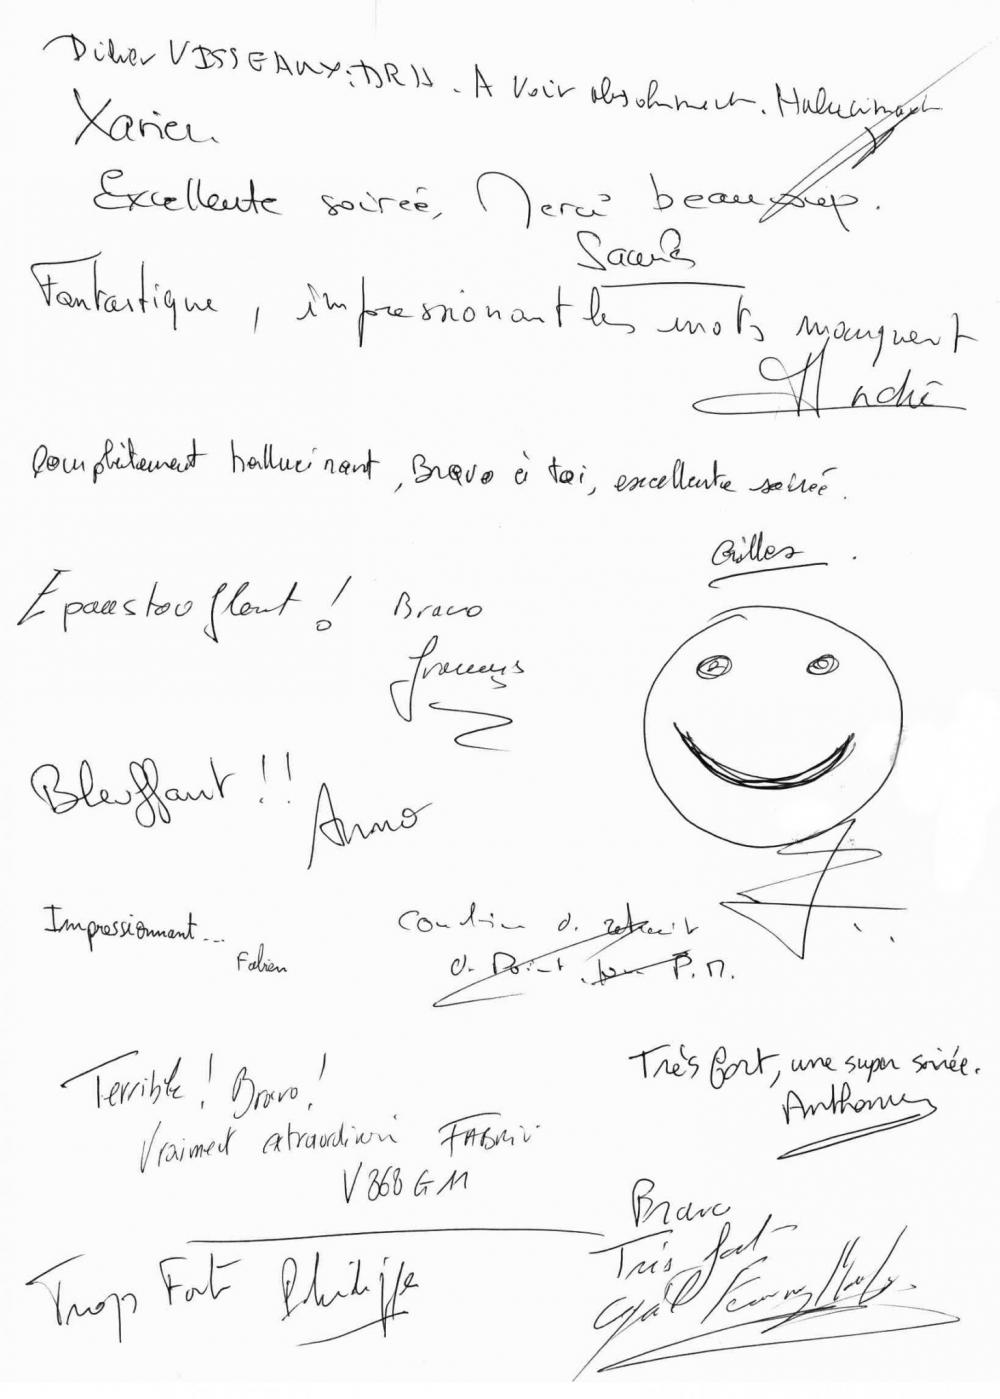 Didier VISSEAUX: DRH. A voir absolument. Hallucinant
Xavier
Excellente soirée, Merci beaucoup.
Fantastique, impressionant les mots manquent
André
Complètement hallucinant, Bravo à toi, excellente soirée.
Gilles
Epoustouflant! Bravo
François
Bleuffant!!
Anno
Impressionnant...
Fabien
Combien de retrait
de Point pour P.M.
Très fort, une super soirée.
Anthony
Terrible! Bravo!
Vraiment extraordinaire FABRIC
Bravo
Très fort
Trop Fort Philippe